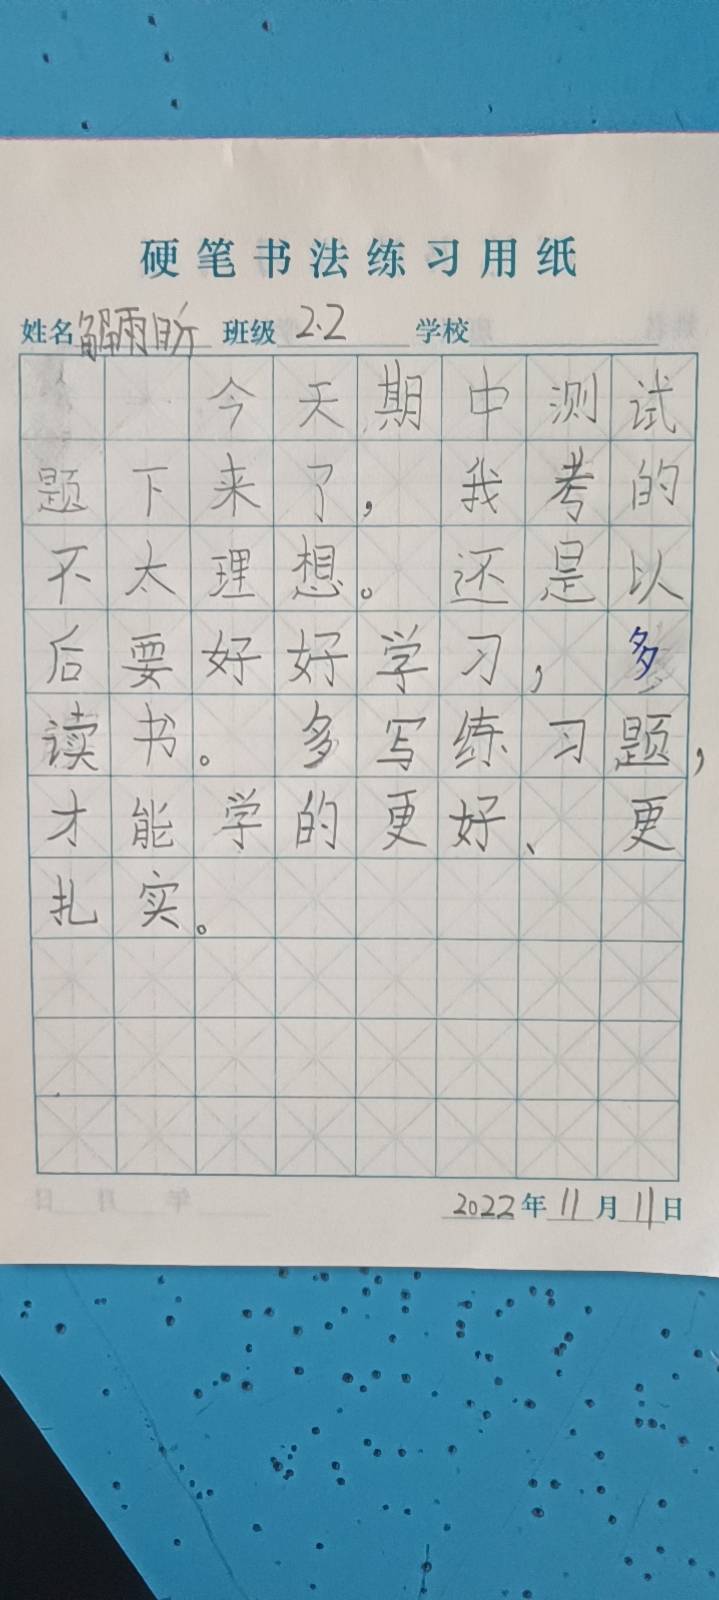 硬笔书法练习用纸
姓名 解雨昕 班级 2.2 学校
今天期中测试
题下来了，我考的
不太理想。还是以
后要好好学习，多
读书。多写练习题，
才能学的更好、更
扎实。
2022年11月11日